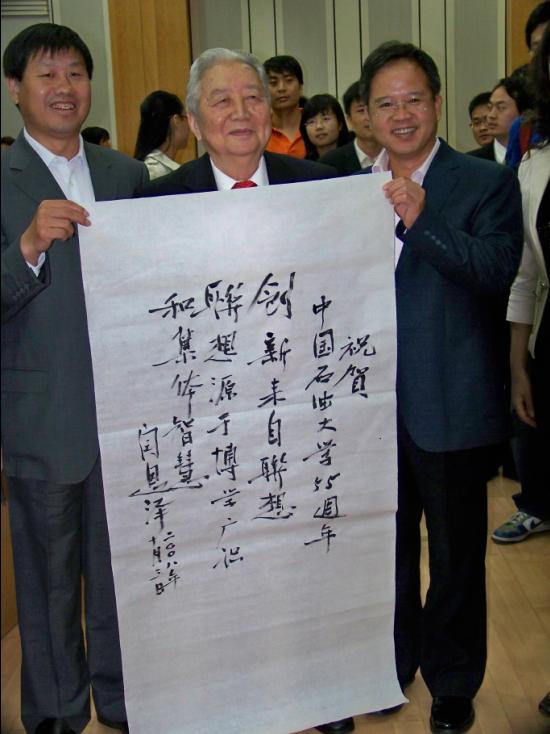 祝賀
中国石油大学55週年
创新来自联想
聯想源于博学广识
和集体智慧
闵恩泽
二〇〇八年
十月三日